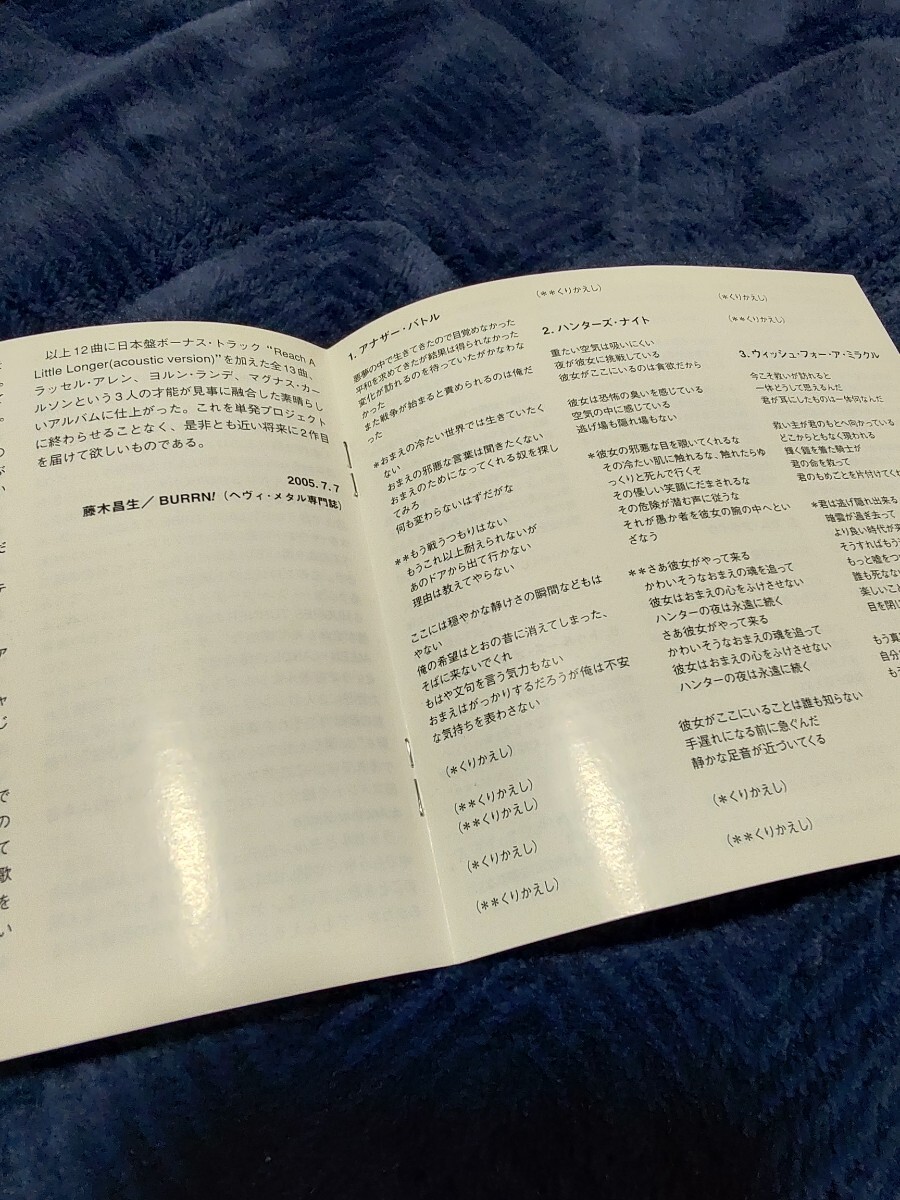 以上12曲に日本盤ボーナス・トラック “Reach A
Little Longer(acoustic version)”を加えた全13曲、
ラッセル・アレン、ヨルン・ランデ、マグナス・カー
ルソンという3人の才能が見事に融合した素晴らし
いアルバムに仕上がった。これを単発プロジェクト
に終わらせることなく、是非とも近い将来に2作目
を届けて欲しいものである。
2005.7.7
藤木昌生／BURRN!（ヘヴィ・メタル専門誌）
1. アナザー・バトル
悪夢の中で生きてきたので目覚めなかった
平和を求めてきたが結果は得られなかった
変化が訪れるのを待っていたがかなわな
かった
また戦争が始まると責められるのは俺だ
った
＊おまえの冷たい世界では生きていたく
ない
おまえの邪悪な言葉は聞きたくない
おまえのためになってくれる奴を探し
てみろ
何も変わらないはずだがな
＊＊もう戦うつもりはない
もうこれ以上耐えられないが
あのドアから出て行かない
理由は教えてやらない
ここには穏やかな静けさの瞬間などもは
やない
俺の希望はとおの昔に消えてしまった、
そばに来ないでくれ
もはや文句を言う気力もない
おまえはがっかりするだろうが俺は不安
な気持ちを表わさない
（＊くりかえし）
（＊＊くりかえし）
（＊＊くりかえし）
（＊くりかえし）
（＊＊くりかえし）
（＊＊くりかえし）
2. ハンターズ・ナイト
重たい空気は吸いにくい
夜が彼女に挑戦している
彼女がここにいるのは貪欲だから
彼女は恐怖の臭いを感じている
空気の中に感じている
逃げ場も隠れ場もない
＊彼女の邪悪な目を覗いてくれるな
その冷たい肌に触れるな、触れたらゆ
っくりと死んで行くぞ
その優しい笑顔にだまされるな
その危険が潜む声に従うな
それが愚か者を彼女の腕の中へとい
ざなう
＊＊さあ彼女がやって来る
かわいそうなおまえの魂を追って
彼女はおまえの心をふけさせない
ハンターの夜は永遠に続く
さあ彼女がやって来る
かわいそうなおまえの魂を追って
彼女はおまえの心をふけさせない
ハンターの夜は永遠に続く
彼女がここにいることは誰も知らない
手遅れになる前に急ぐんだ
静かな足音が近づいてくる
（＊くりかえし）
（＊＊くりかえし）
（＊くりかえし）
（＊＊くりかえし）
3. ウィッシュ・フォー・ア・ミラクル
今こそ救いが訪れると
一体どうして思えるんだ
君が耳にしたものは一体何なんだ
救い主が君のもとへ向かっている
どこからともなく現われる
輝く鎧を着た騎士が
君の命を救って
君のもめごとを片付けてくれ
＊君は逃げ隠れ出来る
暗雲が過ぎ去って
より良い時代が来
そうすればもう
もっと嘘をつ
誰も死なな
楽しいこと
目を閉じ
もう真
自分